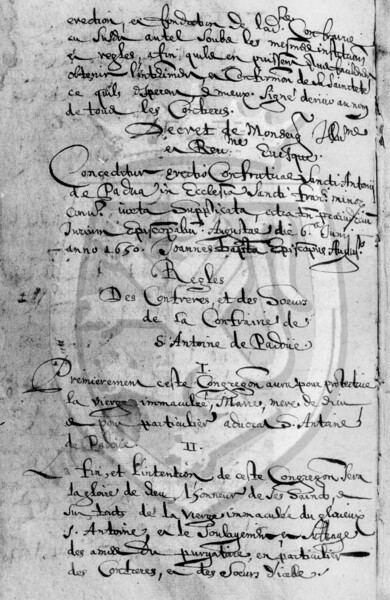 erection, et fondation de lad.te Confrairie
au susd. autel soubs les mesmes institutions
et regles, afin qu'ils en puissent
obtenir l'intérinon et Confirmon de sa Saincteté
ce qu'ils esperent d'mieux. Signé au nom
de touts les Confreres.
Decret de Monseig.r Ill.me
et Rev.me Evesque.
Conceditur erectio Confratriae Sancti Antonij
de Padua in Ecclesia Sancti Franc. minor.
Conv. iuxta supplicata, citra praejudicium
Iurium Episcopalium. Augustae die 6.ta Junij
anno 1650. Joannes Bapta Episcopus August.
Regles
Des Confreres, et des Soeurs
de la Confrairie de
S. Antoine de Padoüe.
I.
Premierement ceste Congregon aura pour protectrice
la vierge immaculée, Marie, mere de dieu
et pour particulier advocat S. Antoine
de Padoüe. II.
La fin, et l'intention de ceste Congregon sera
la gloire de dieu, l'honneur de ses Saincts, et
sur touts de la vierge immaculée du glorieux
S. Antoine, et le soulagement, et suffrage
des ames du purgatoire, en particulier
des Confreres, et des Soeurs d'icelle.